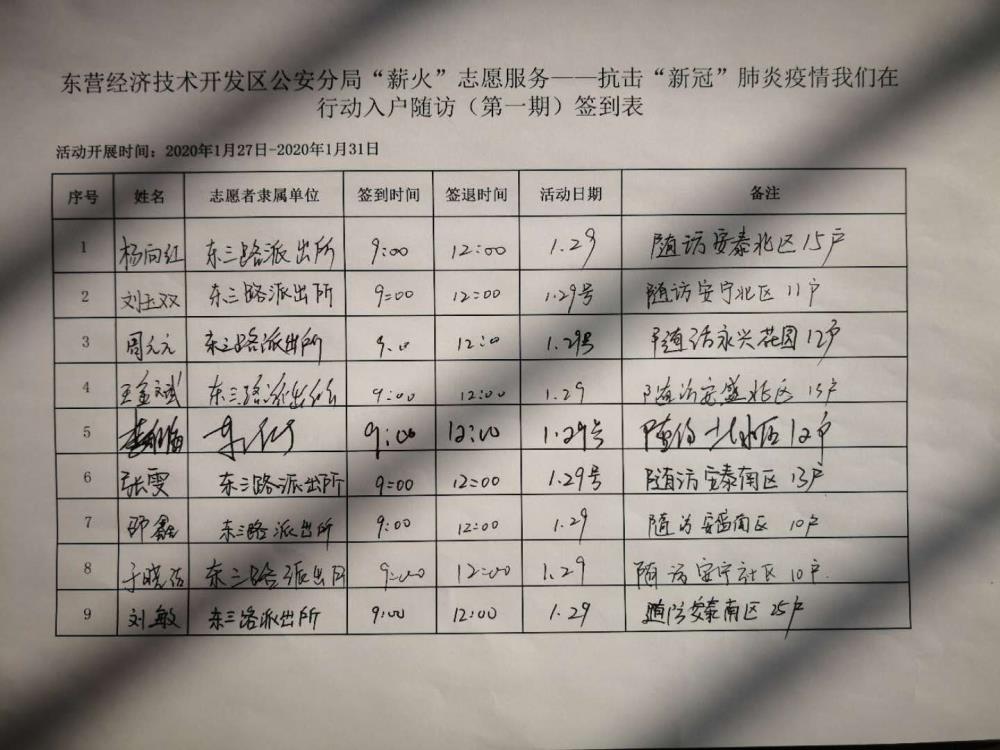 东营经济技术开发区公安分局“薪火”志愿服务——抗击“新冠”肺炎疫情我们在
行动入户随访（第一期）签到表
活动开展时间：2020年1月27日-2020年1月31日
序号 姓名 志愿者隶属单位 签到时间 签退时间 活动日期 备注
1 杨向红 东三路派出所 9:00 12:00 1.29 随访安泰北区15户
2 刘玉双 东三路派出所 9:00 12:00 1.29号 随访安宁北区11户
3 周元元 东三路派出所 9:00 12:00 1.29号 随访永兴花园12户
4 东三路派出所 9:00 12:00 1.29 随访安盛北区13户
5 9:00 12:00 1.29号 12户
6 张雯 东三路派出所 9:00 12:00 1.29号 随访安泰南区13户
7 邵鑫 东三路派出所 9:00 12:00 1.29 随访安富南区 10户
8 于晓 东三路派出所 9:00 12:00 1.29 随访安宁社区10户.
9 刘敏 东三路派出所 9:00 12:00 1.29 随访安泰南区25户